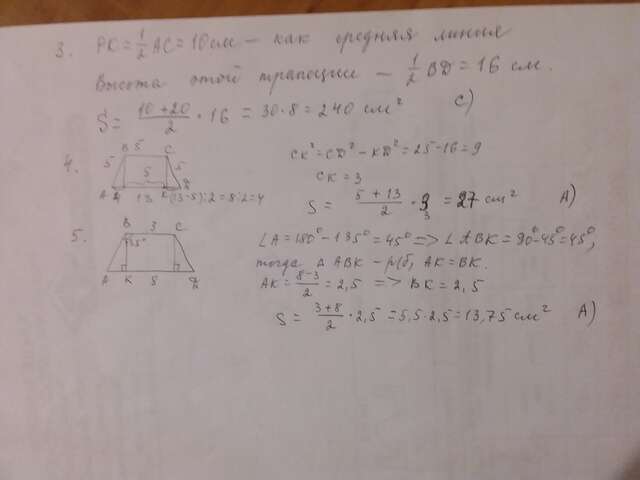 3. PK = 1/2 AC = 10 см – как средняя линия
Высота этой трапеции – 1/2 BD = 16 см.
S = (10 + 20)/2 · 16 = 30 · 8 = 240 см² C)
4. B 5 C
5 5 5
A 13 K D (13-5):2=8:2=4
CK² = CD² - KD² = 25 - 16 = 9
CK = 3
S = (5 + 13)/2 · 3 = 27 см² A)
5. B 3 C
A K 5 D
∠A = 180° - 135° = 45° => ∠ABK = 90° - 45° = 45°,
тогда Δ ABK – р/б, AK = BK.
AK = (8-3)/2 = 2,5 => BK = 2,5
S = (3+8)/2 · 2,5 = 5,5 · 2,5 = 13,75 см² A)